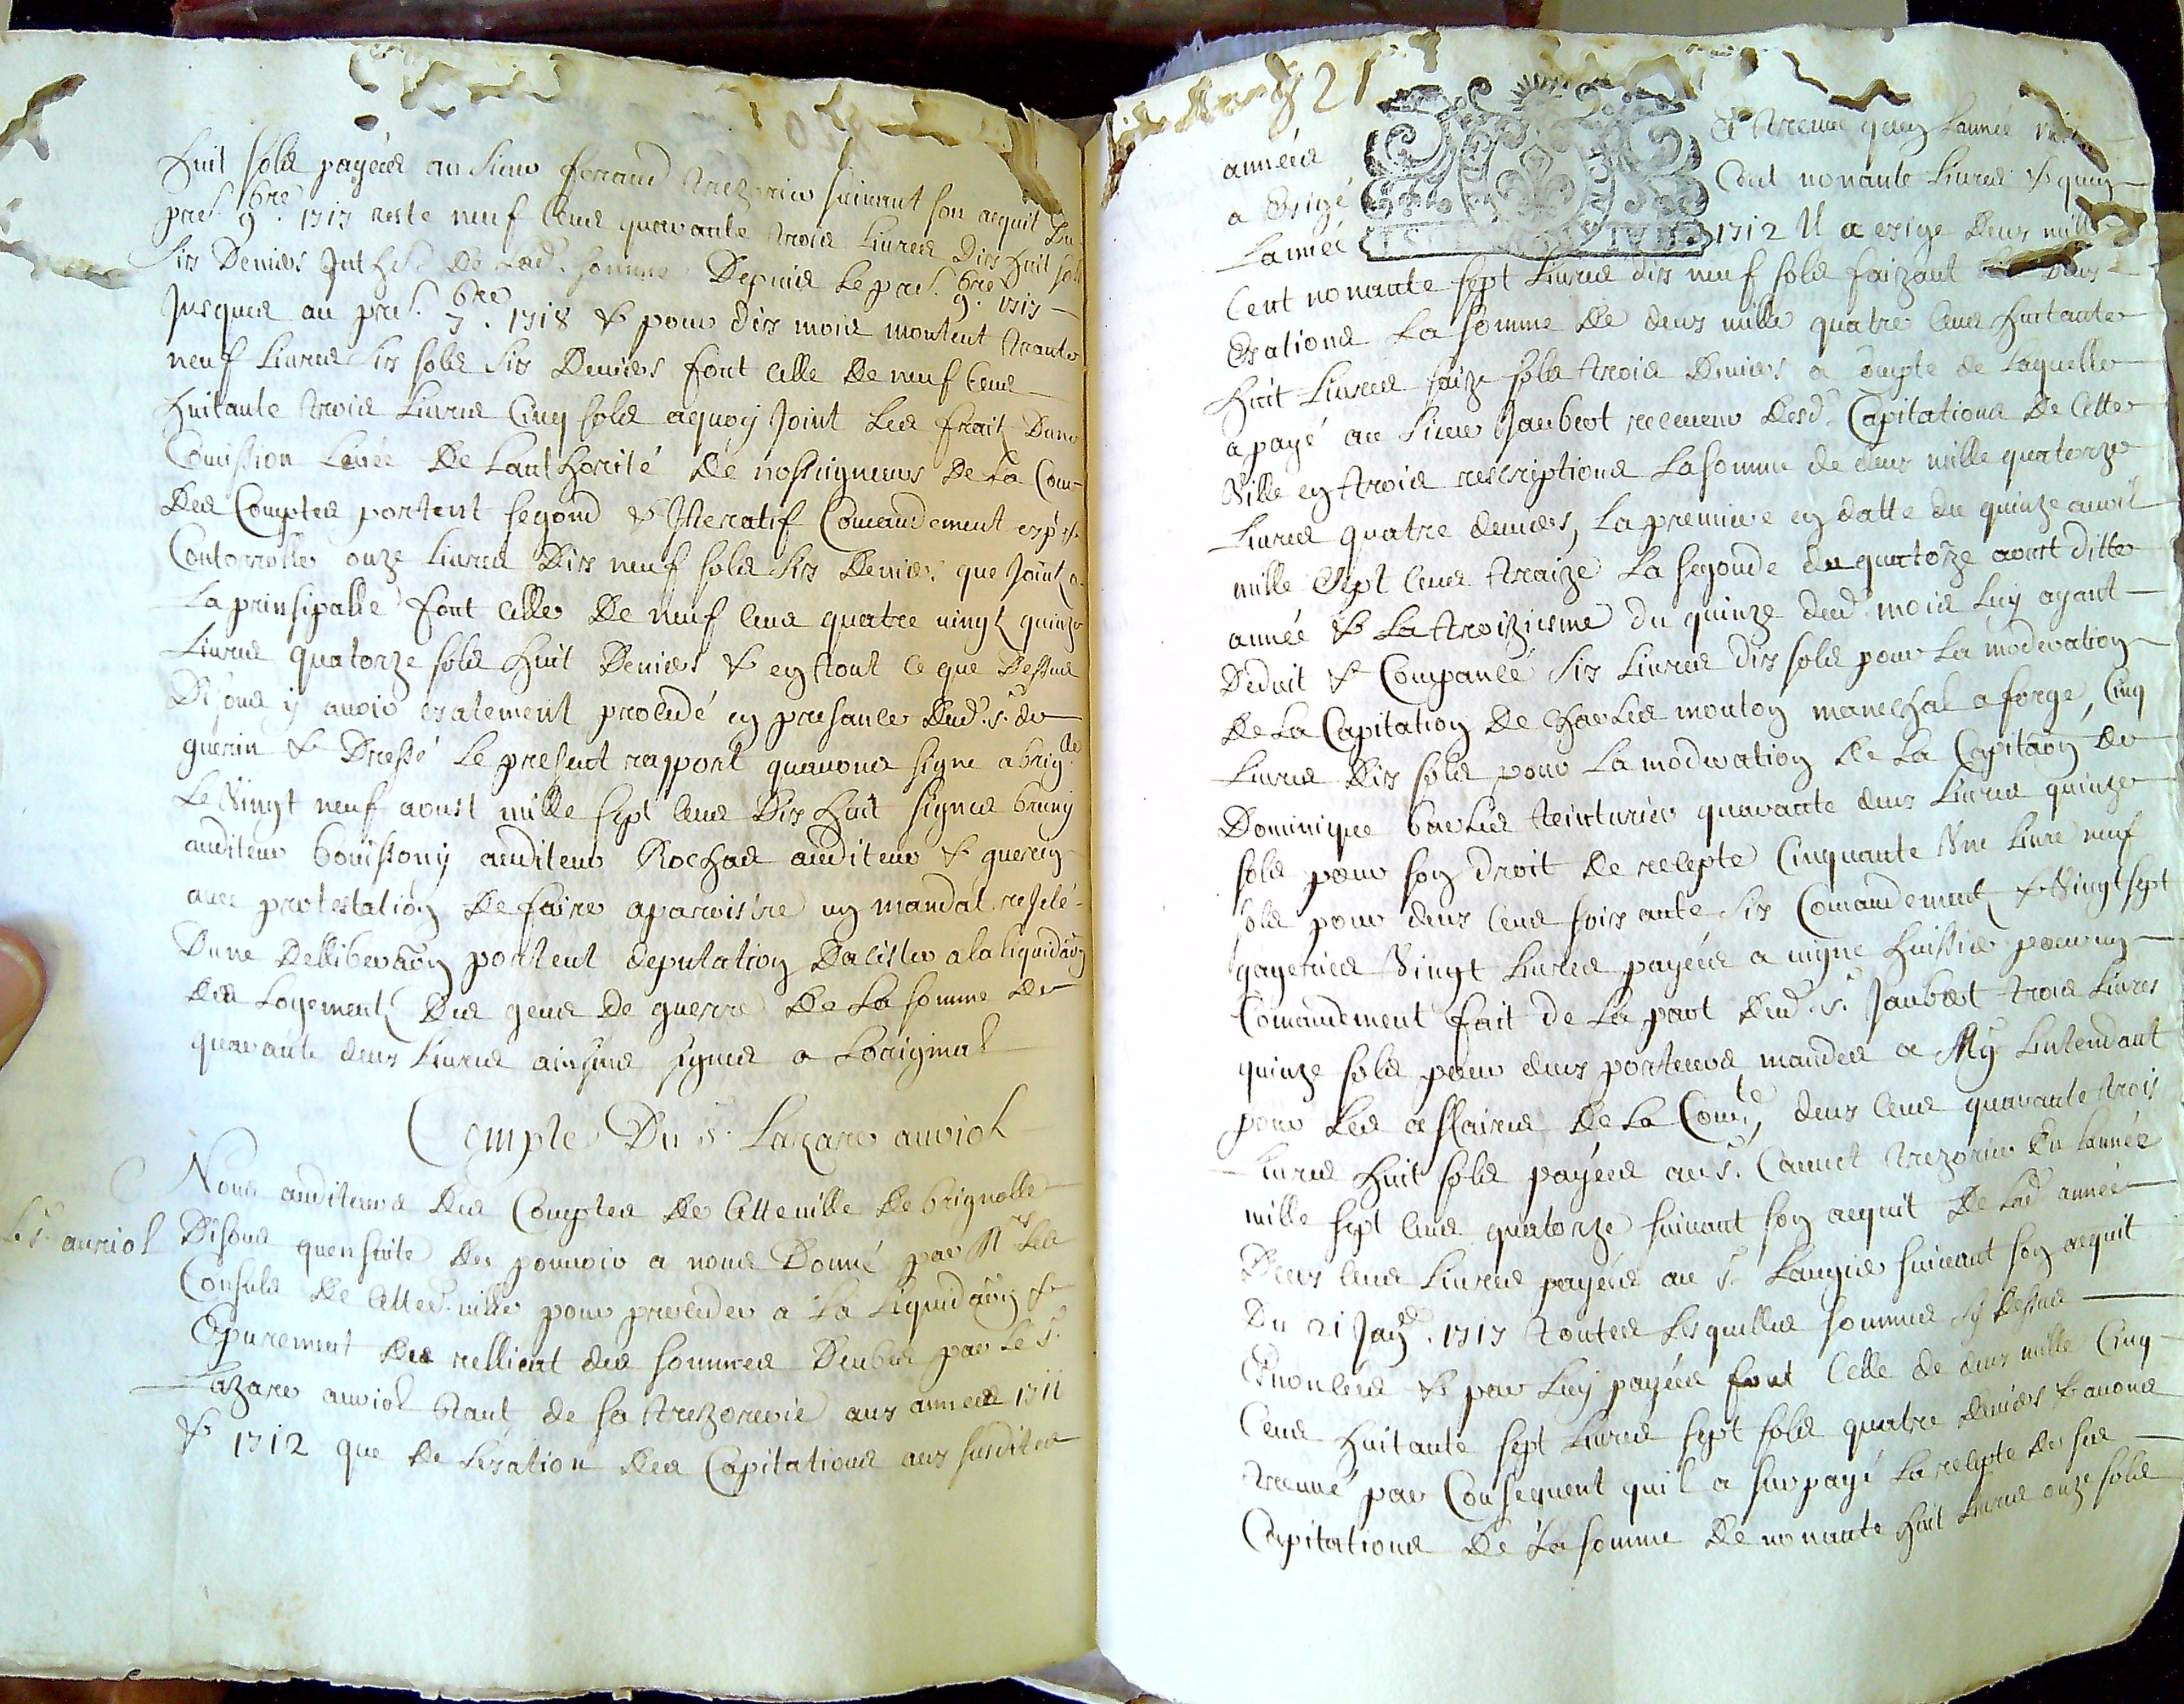 huit sols payées au sieur ferraud trezorier suivant son acquit du
pres.t 9.bre 1717 reste neuf cens quarante trois livres dix huit sols
six deniers Int.hs. de lad. somme Depuis le pres.t 9.bre 1717
jusques au pres.t 7.bre 1718 & pour dix mois montent trante
neuf livres six sols six deniers font celle de neuf cens
huitante trois livres Cinq sols aquoy joint les frais Dune
Comission Levée De Lauthorité de nosseigneurs De La Cour
Des Comptes portent segond & Iteratif Comandement exp.t &
Controrolle onze livres Dix neuf sols six deniers que joint a
La prinsipalle font celle De neuf cens quatre vingt quinze
Livres quatorze sols huit Deniers & en tout ce que Dessus
Disons y avoir exatement procedé en presance dud. s. de
guerin & Dressé le present rapport quavons signé a brig.le
Le Vingt neuf aoust mille sept cens Dix huit signés bruny
auditeur bouissony auditeur Rochas auditeur & guerin
avec protestation De faire aparoistre un mandat
Dune Delliberaõn portent deputation Dacister a la liquidaõn
des Logements Des gens de guerre De La somme de
quarante deux livres ainsins signés a Loriginal
Compte Du s.r Lazare auriol
Nous auditeurs Des Comptes De Cette ville De brignolle
Le s.r auriol
Disons quensuite des pouvoir a nous Donné par M.rs Les
Consuls De Cette d. ville pour proceder a La Liquidaõn &
Epurement des rellicat des sommes Deubes par Le s.r
Lazare auriol tant de sa trezorerie aux années 1711
& 1712 que De Lexation Des Capitations aux susdites
21
années & treuvé quen lannée
a Exigé Cent nonante livres & quen
Lannée 1712 Il a exigé deux mille
Cent nonante sept livres dix neuf sols faizant deux
Exations La somme De deux mille quatre cens huitante
huit livres saize sols trois Deniers a compte de Laquelle
a payé au sieur Jaubert receveur desd. Capitations De Cette
Ville en trois rescriptions La somme de deux mille quatorze
Livres quatre deniers, La premiere en datte du quinze avril
mille sept cens traize La segonde du quatorze avost ditte
année & La troizieme du quinze dud. mois Luy ayant
Deduit & Compancé six livres dix sols pour La moderation
De La Capitation De Charles mouton marechal a forge, Cinq
Livres Dix sols pour La moderation de La Capitaõn de
Dominique barles teinturier quarante deux Livres quinze
sols pour son Droit De recepte Cinquante Une Livre neuf
sols pour deux cens soixante six Comandements & Vingt sept
gageries Vingt Livres payées a vigne huissier pour un
Comandement fait de La part dud. s.r Jaubert trois Livres
quinze sols pour deux porteurs mandés a Mg.r Lintendant
pour Les affaires De La Com.té, deux cens quarante trois
Livres huit sols payées au s.r Cannet trezorier En Lannée
mille sept cens quatorze suivant son acquit De Lad. année
Deux cens Livres payées au s.r Laugier suivant son acquit
Du 21 Janv.r 1717 toutes Lesquelles sommes sy dessus
Enoncées & par Luy payées font Celle de deux mille Cinq
Cens huitante sept Livres sept sols quatre deniers & avons
treuvé par Consequent quil a surpayé La recepte de ses
Capitations De La somme De nonante huit Livres onze sols